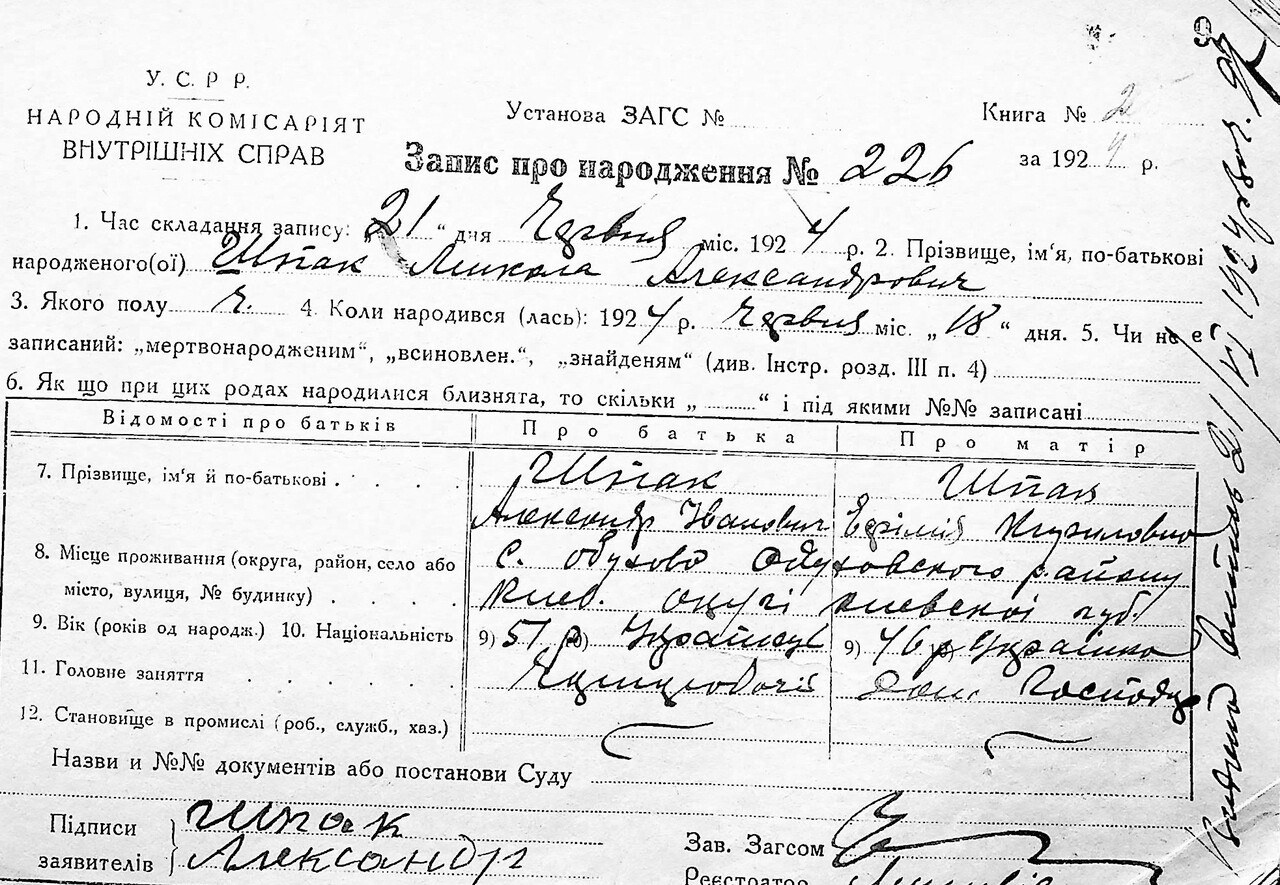 9
У. С. Р Р.
НАРОДНІЙ КОМІСАРІЯТ
ВНУТРІШНІХ СПРАВ
Установа ЗАГС №
Книга № 2
за 1924 р.
Запис про народження № 226
1. Час складання запису: „21“ дня Червня міс. 1924 р. 2. Прізвище, ім‘я, по-батькові
народженого(ої) Шпак Микола Александрович
3. Якого полу ч. 4. Коли народився (лась): 1924 р. Червня міс. „18“ дня. 5. Чи не є
записаний: „мертвонародженим“, „всиновлен.“, „знайденям“ (див. Інстр. розд. III п. 4)
6. Як що при цих родах народилися близнята, то скільки „ “ і під якими №№ записані
Відомості про батьків Про батька Про матір
7. Прізвище, ім‘я й по-батькові Шпак Шпак
Александр Иванович Кириловна
8. Місце проживання (округа, район, село або С. Обухово Обуховского району
місто, вулиця, № будинку) Киев. округі Киевскоі губ.
9. Вік (років од народж.) 10. Національність 9) 51 р. 10) Українець 9) 46 р. Українка
11. Головне заняття Дом. Господ
12. Становище в промислі (роб., служб., хаз.)
Назви и №№ документів або постанови Суду
Підписи заявителів Шпак
Александр
Зав. Загсом
Реєстратор
21/VI 1924